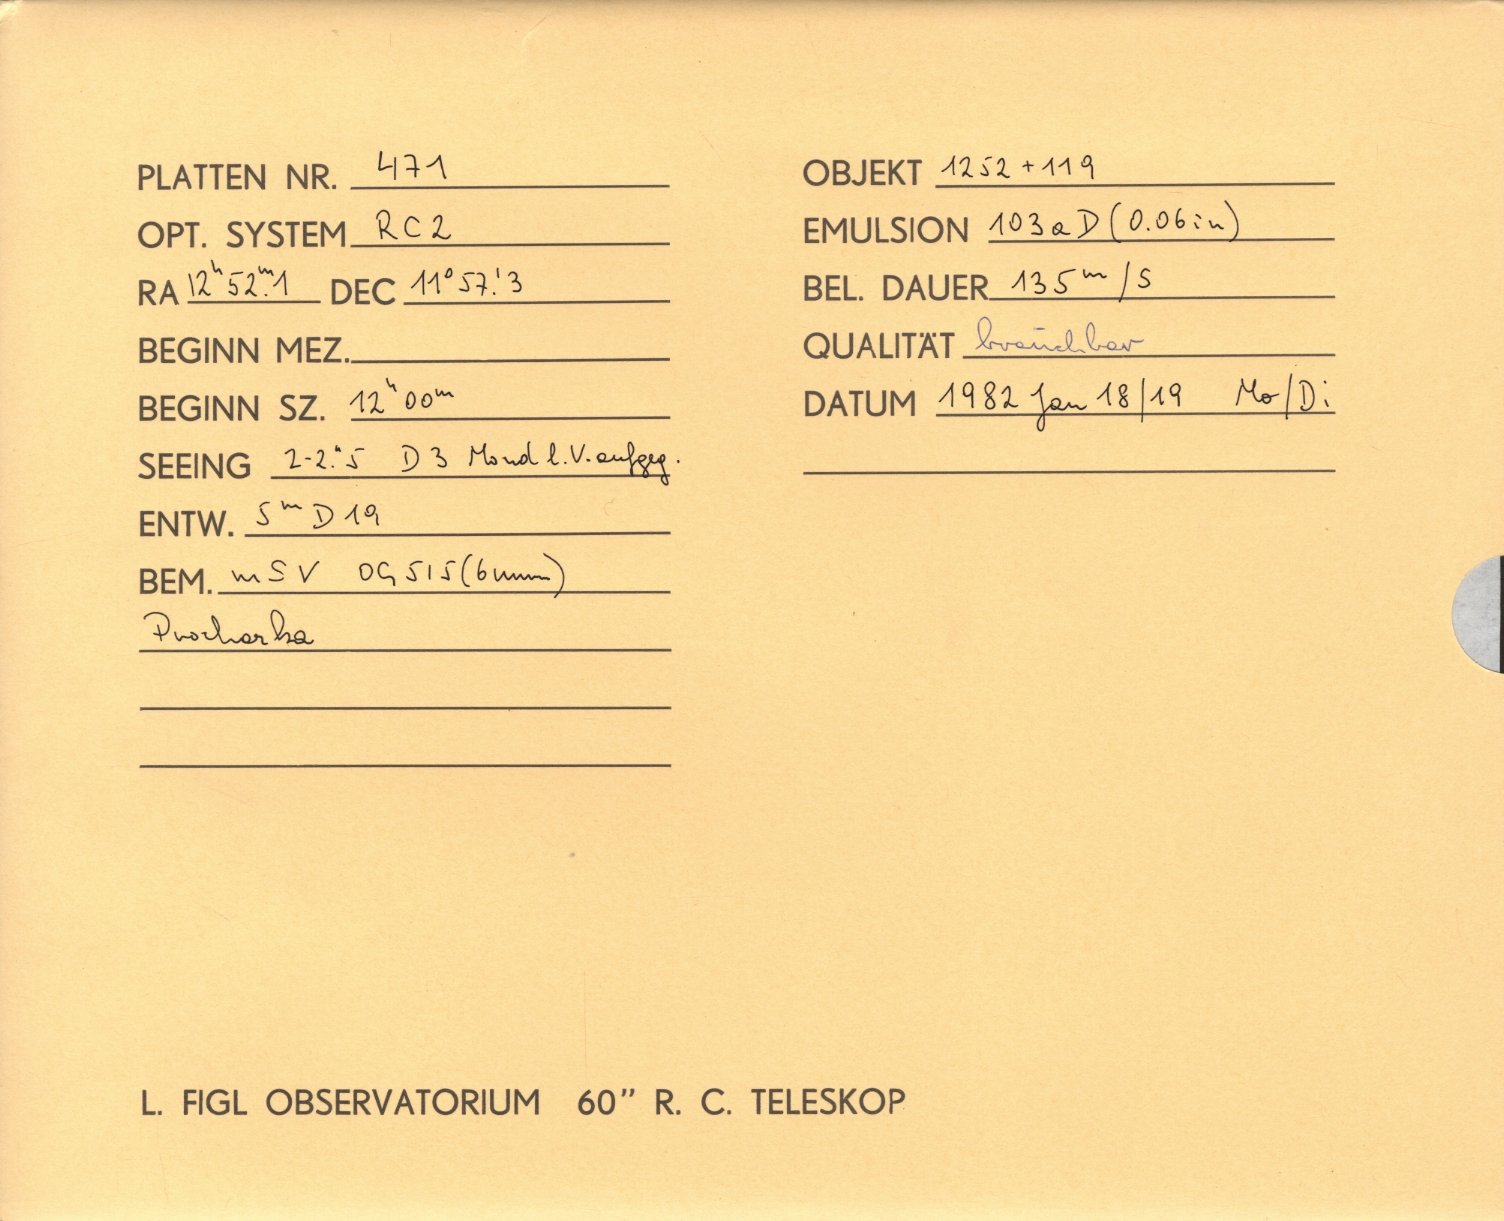 PLATTEN NR. 471
OPT. SYSTEM RC2
RA 12ʰ52ᵐ.1 DEC 11°57.'3
BEGINN MEZ.
BEGINN SZ. 12ʰ00ᵐ
SEEING 2-2."5 D3 Mond l. V. aufgeg.
ENTW. 5ᵐ D19
BEM. mSV OG515(6mm)
Prochazka
OBJEKT 1252+119
EMULSION 103aD(0.06in)
BEL. DAUER 135ᵐ/S
QUALITÄT brauchbar
DATUM 1982 Jan 18/19 Mo/Di
L. FIGL OBSERVATORIUM 60" R. C. TELESKOP